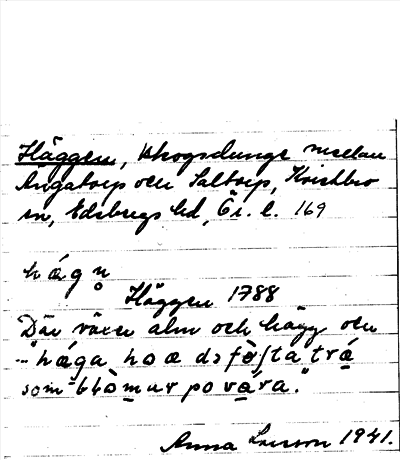 Häggen, skogsdunge mellan
Ängatorp och Saltorp, Kvistbro
sn, Edsbergs hd, Ör. l. 169
hág n̥
Häggen 1788
Där växer alm och hägg och
"hæga hoæ də fø̀ʃta trǽ
som blòmur po vǻra."
Anna Larsson 1941.